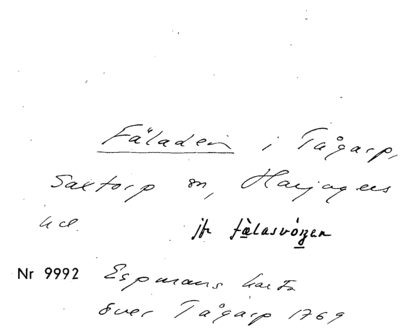 Fäladen i Tågarp,
Saxtorp sn, Harjagers
hd. jfr fälasvägen
Nr 9992 Espmans karta
över Tågarp 1769